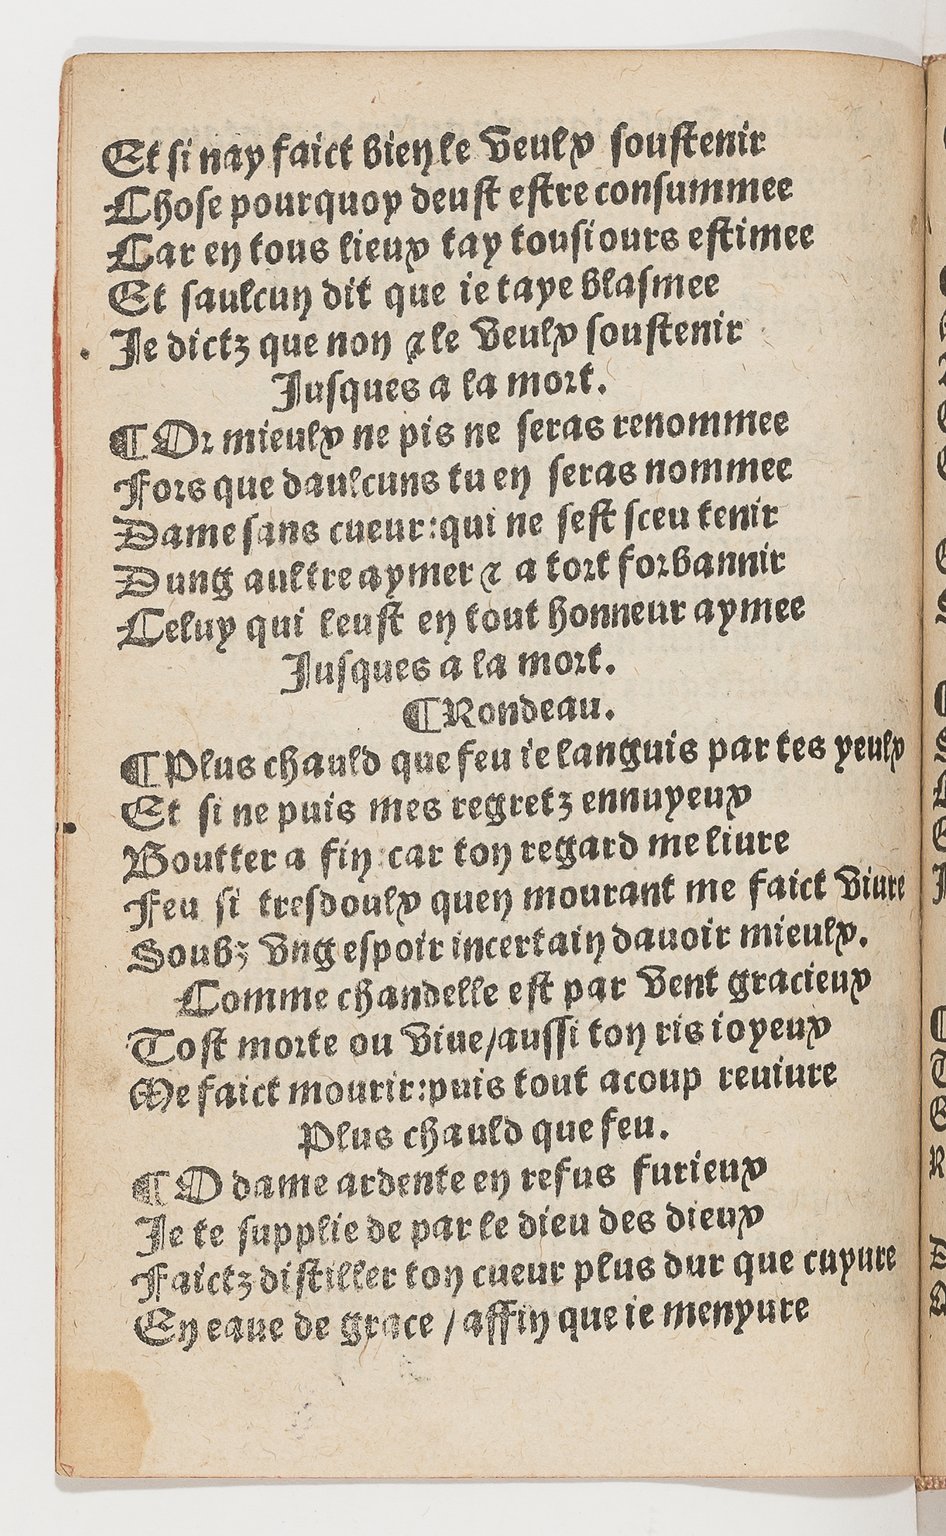 Et si nay faict bien le veulx soustenir
Chose pourquoy deust estre consummee
Car en tous lieux tay tousiours estimee
Et saulcun dit que ie taye blasmee
Je dictz que non ⁊ le veulx soustenir
Jusques a la mort.
¶ Or mieulx ne pis ne seras renommee
Fors que daulcuns tu en seras nommee
Dame sans cueur:qui ne sest sceu tenir
Dung aultre aymer ⁊ a tort forbannir
Celuy qui leust en tout honneur aymee
Jusques a la mort.
¶ Rondeau.
¶ Plus chauld que feu ie languis par tes yeulx
Et si ne puis mes regretz ennuyeux
Boutter a fin car ton regard me liure
Feu si tresdoulx quen mourant me faict viure
Soubz vng espoir incertain dauoir mieulx.
Comme chandelle est par vent gracieux
Tost morte ou viue/aussi ton ris ioyeux
Me faict mourir:puis tout acoup reuiure
Plus chauld que feu.
¶ O dame ardente en refus furieux
Je te supplie de par le dieu des dieux
Faictz distiller ton cueur plus dur que cuyure
En eaue de grace / affin que ie menyure